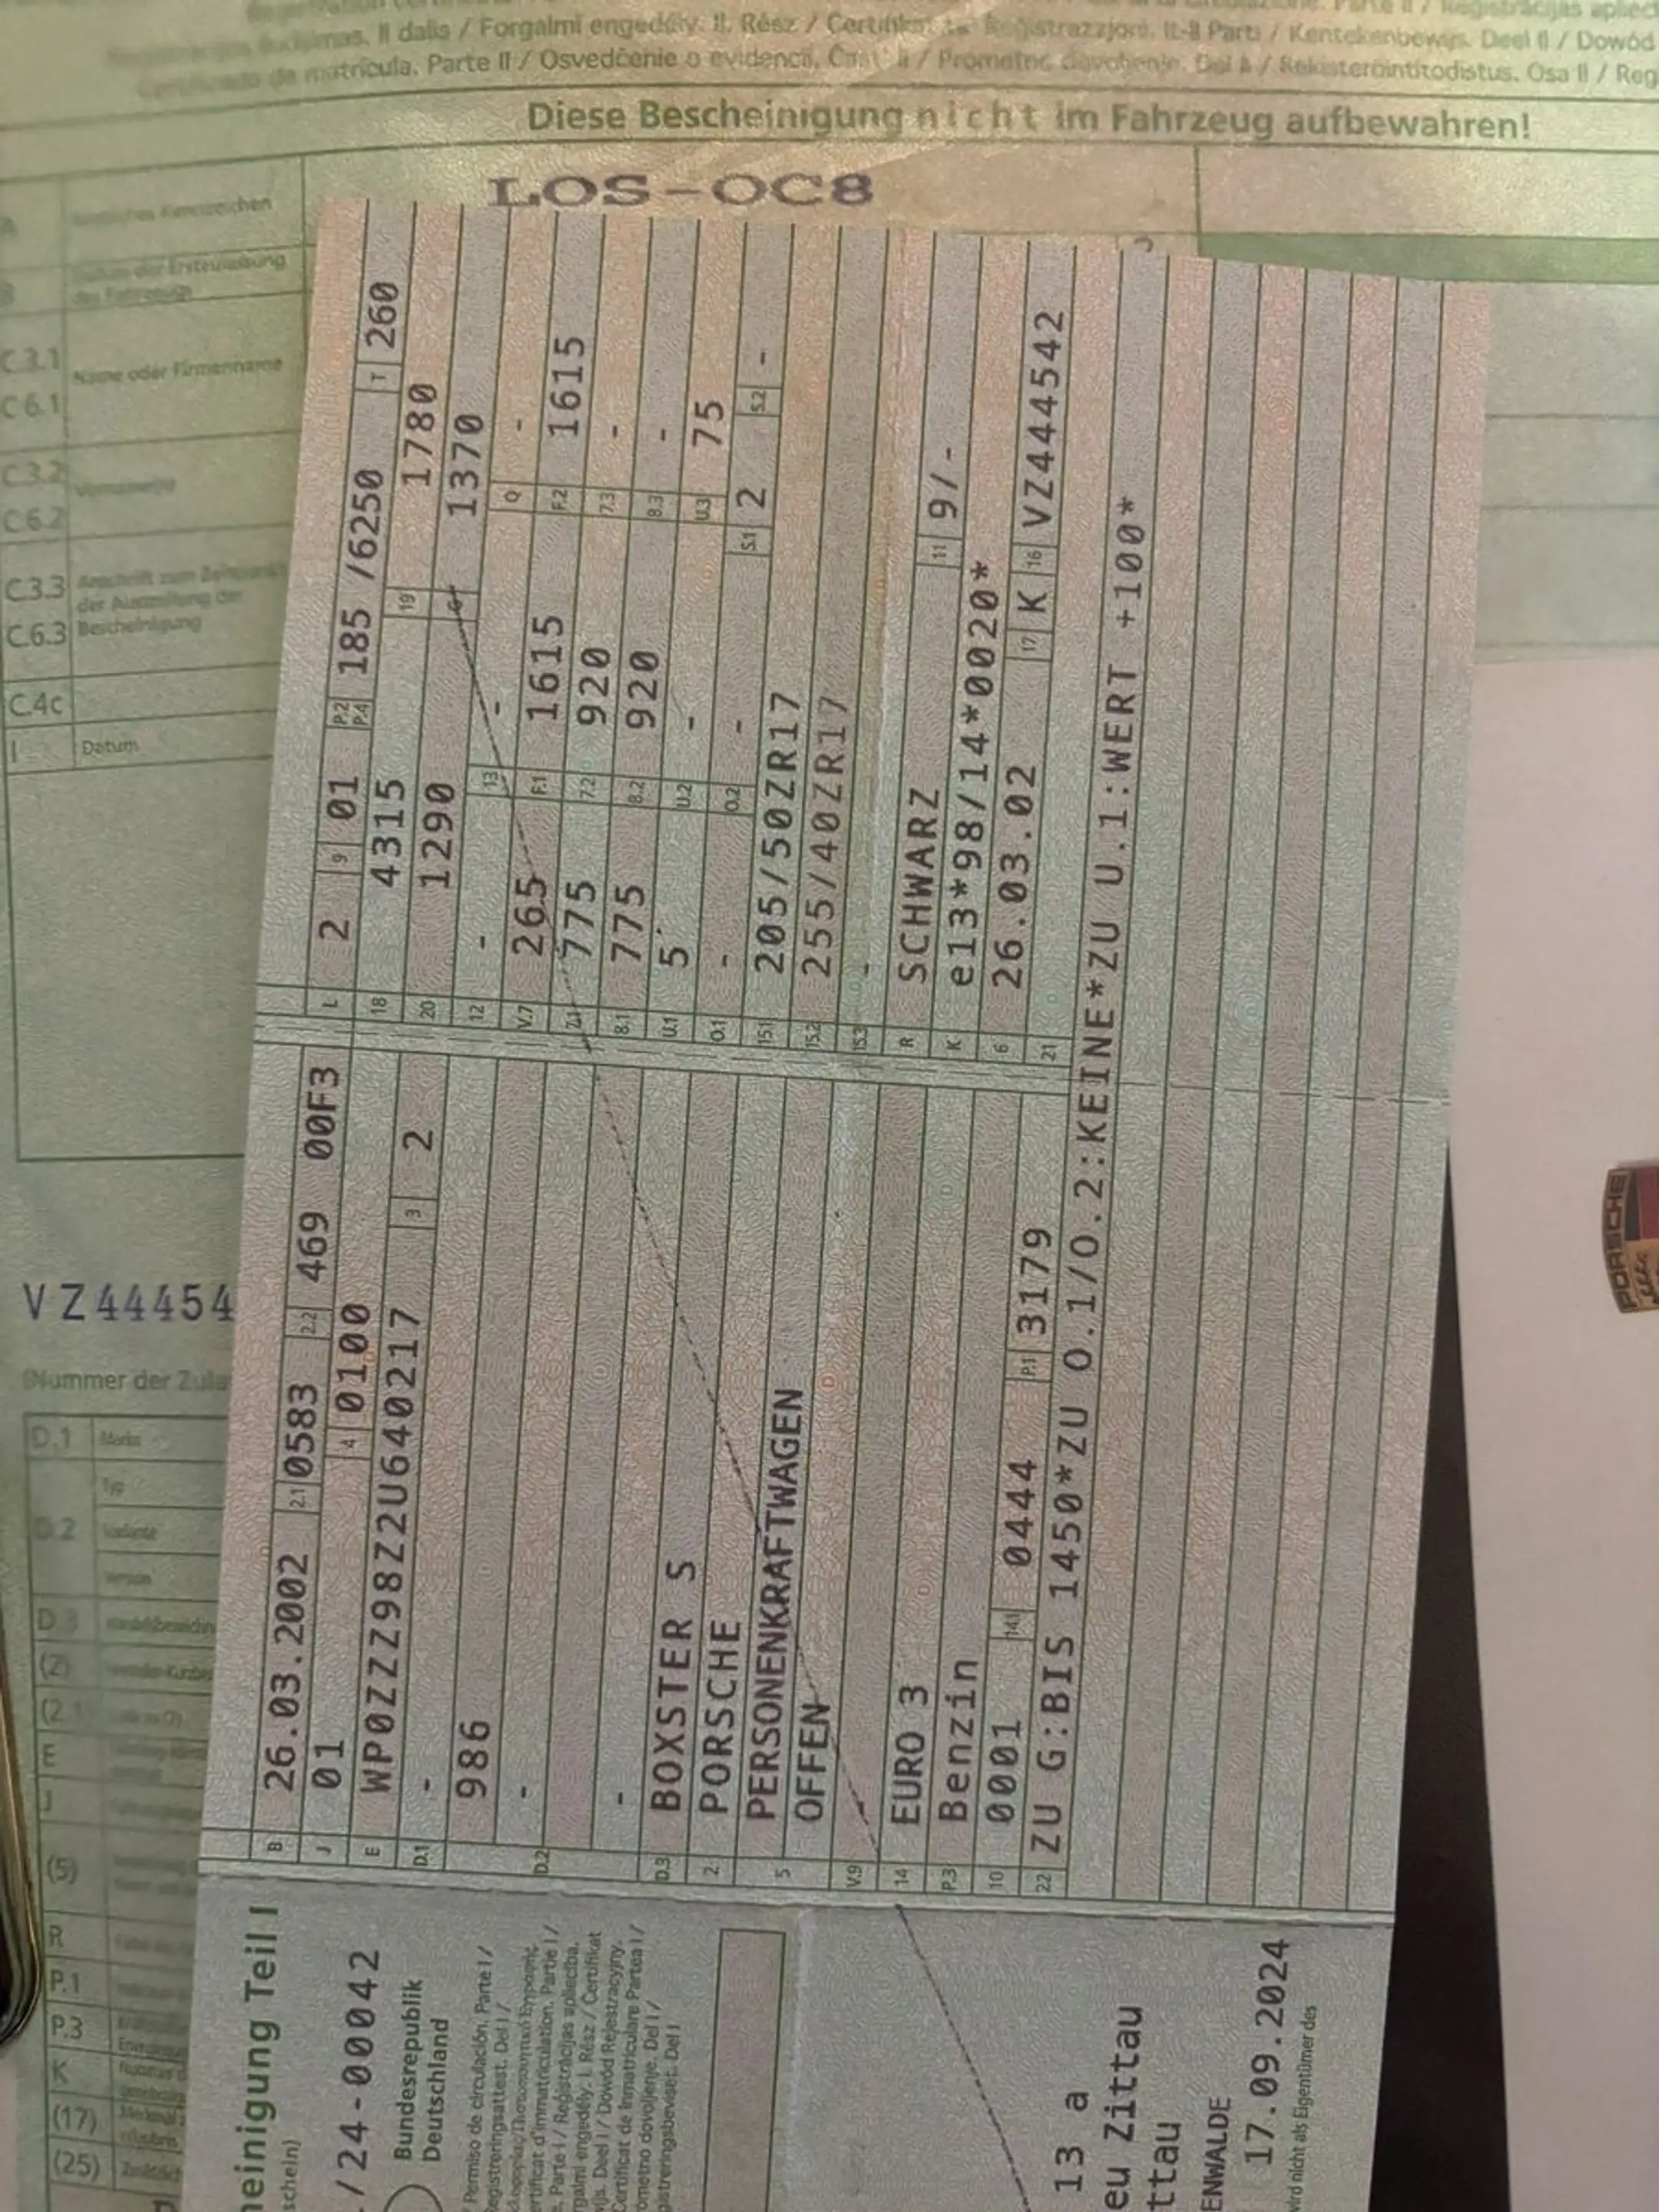 imas. II dalis / Forgalmi engedély. II. Rész /
Certificado de matrícula. Parte II / Osvedčenie o evidencii. Časť II / Prometno dovoljenje. Del II / Rekisteröintitodistus. Osa II / Reg
Diese Bescheinigung nicht im Fahrzeug aufbewahren!
LOS-OC8
C.3.1 Name oder Firmenname
C.6.1
C.3.2
C.6.2
C.3.3 Anschrift zum Zeitpunkt
der Ausstellung der
C.6.3 Bescheinigung
C.4c
I Datum
VZ44454
(Nummer der Zula
D.1
D.2
D.3
(2)
(2.1)
E
J
(5)
R
P.1
P.3
K
(17)
(25)
heinigung Teil I
schein)
/24-00042
Bundesrepublik
Deutschland
Permiso de circulación. Parte I /
Registreringsattest. Del I /
ertificat d'immatriculation. Partie I /
e. Parte I / Reģistrācijas apliecība.
rgalmi engedély. I. Rész / Certifikat
ijs. Deel I / Dowód Rejestracyjny.
Certificat de Inmatriculare Partea I /
ometno dovoljenje. Del I /
gistreringsbeviset. Del I
13 a
eu Zittau
ttau
ENWALDE
17.09.2024
wird nicht als Eigentümer des
B 26.03.2002 2.1 0583 2.2 469 00F3
J 01 4 0100
E WP0ZZZ98Z2U640217 3 2
D.1 -
986
D.2 -
-
D.3 BOXSTER S
2 PORSCHE
5 PERSONENKRAFTWAGEN
OFFEN
V.9
14 EURO 3
P.3 Benzin
10 0001 14.1 0444 P.1 3179
L 2 9 01 P.2 P.4 185 /6250 T 260
18 4315 19 1780
20 1290 G 1370
12 - 13 - Q -
V.7 265 F.1 1615 F.2 1615
7.1 775 7.2 920 7.3 -
8.1 775 8.2 920 8.3 -
U.1 5 U.2 - U.3 75
O.1 - O.2 - S.1 2 S.2 -
15.1 205/50ZR17
15.2 255/40ZR17
15.3 -
R SCHWARZ 11 9/-
K e13*98/14*0020*
6 26.03.02 17 K 16 VZ444542
21
22 ZU G:BIS 1450*ZU O.1/O.2:KEINE*ZU U.1:WERT +100*
PORSCHE